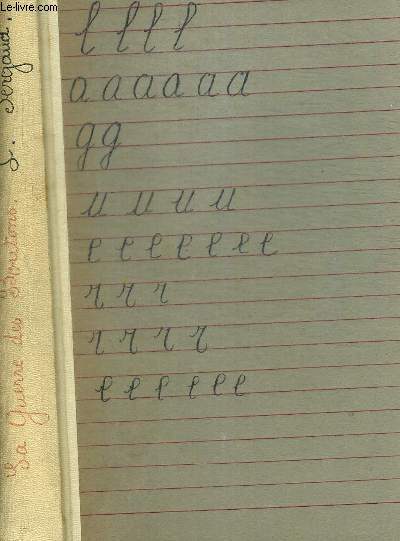 Le-livre.com
L. Pergaud.
La Guerre des Boutons.
l l l l
a a a a a a
g g
u u u u
e e e e e e e
r r r
r r r r
e e e e e e